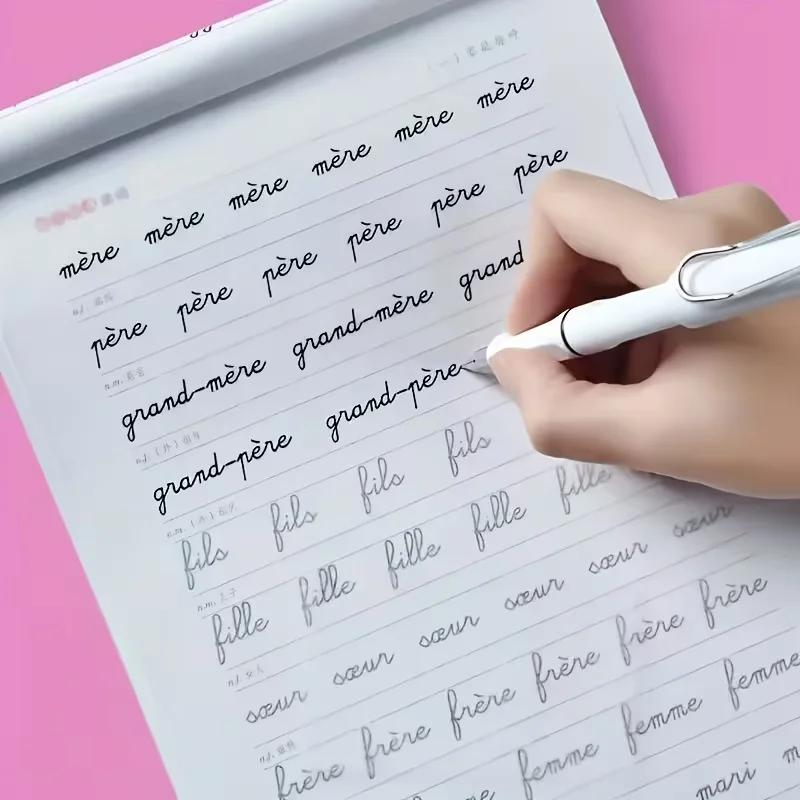 mère mère mère mère mère mère
n.f.
père père père père père père
n.m.
grand-mère grand-mère grand
n.f. (外)祖母
grand-père grand-père
n.m. (外)祖父
fils fils fils fils
n.m. 儿子
fille fille fille fille fille
n.f.
sœur sœur sœur sœur sœur sœur
n.f.
frère frère frère frère frère frère
femme femme femme
mari